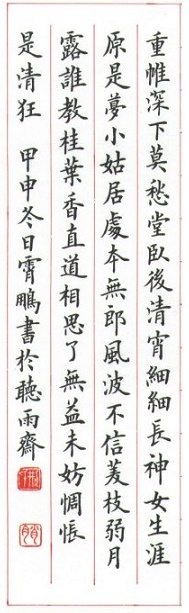 重帷深下莫愁堂臥後清宵細細長神女生涯
原是夢小姑居處本無郎風波不信菱枝弱月
露誰教桂葉香直道相思了無益未妨惆悵
是清狂 甲申冬日霄鵬書於聽雨齋